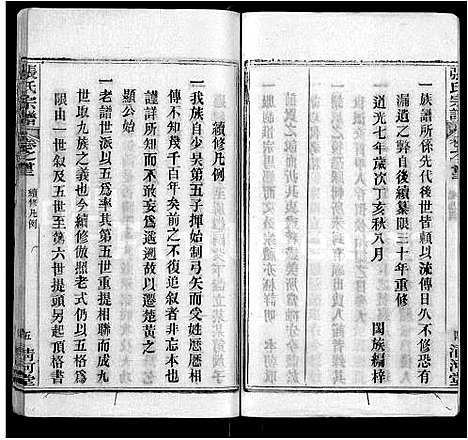 張氏宗譜
一族譜所係先代後世皆賴以流傳日久不修恐有
漏遺之咎自後續纂限三十年重修
道光七年歲次丁亥秋八月　闔族編梓
清河堂
張氏宗譜
卷之首三
續修凡例
五
清河堂
續修凡例
一我族自少昊第五子揮始制弓矢而受姓厯厯相
傳不知幾千百年矣前之不復追叙者非忘本也
謹詳所可詳而不敢妄爲遥遡故以遷楚黄之
顯公始
一老譜世派以五爲率其第五世重提相聯而成九
世取九族之義也今續修倣照老式仍以五世爲
限由一世叙及五世至第六世提頭另起頂格書